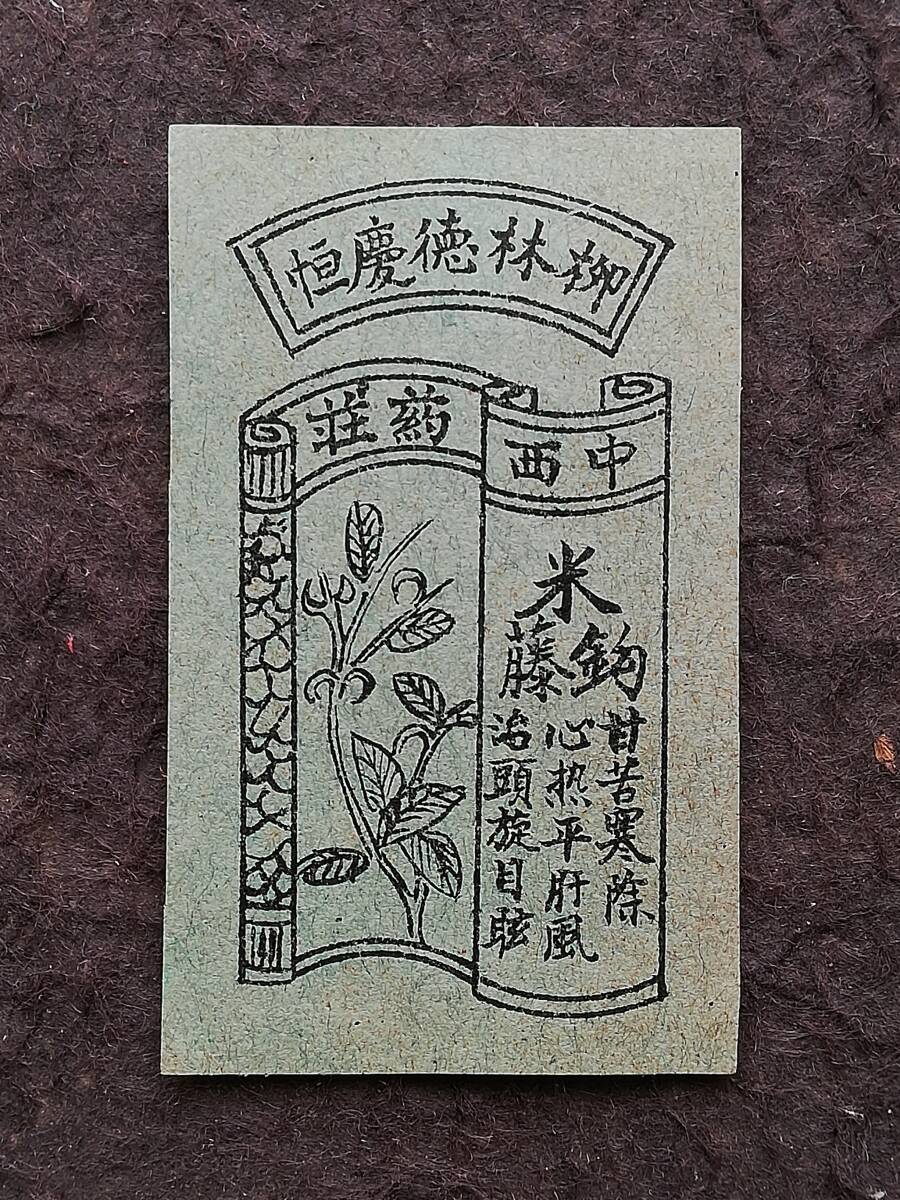 柳林德慶恒
中西
葯莊
米
鈎藤
甘苦寒除
心热平肝風
治頭旋目眩